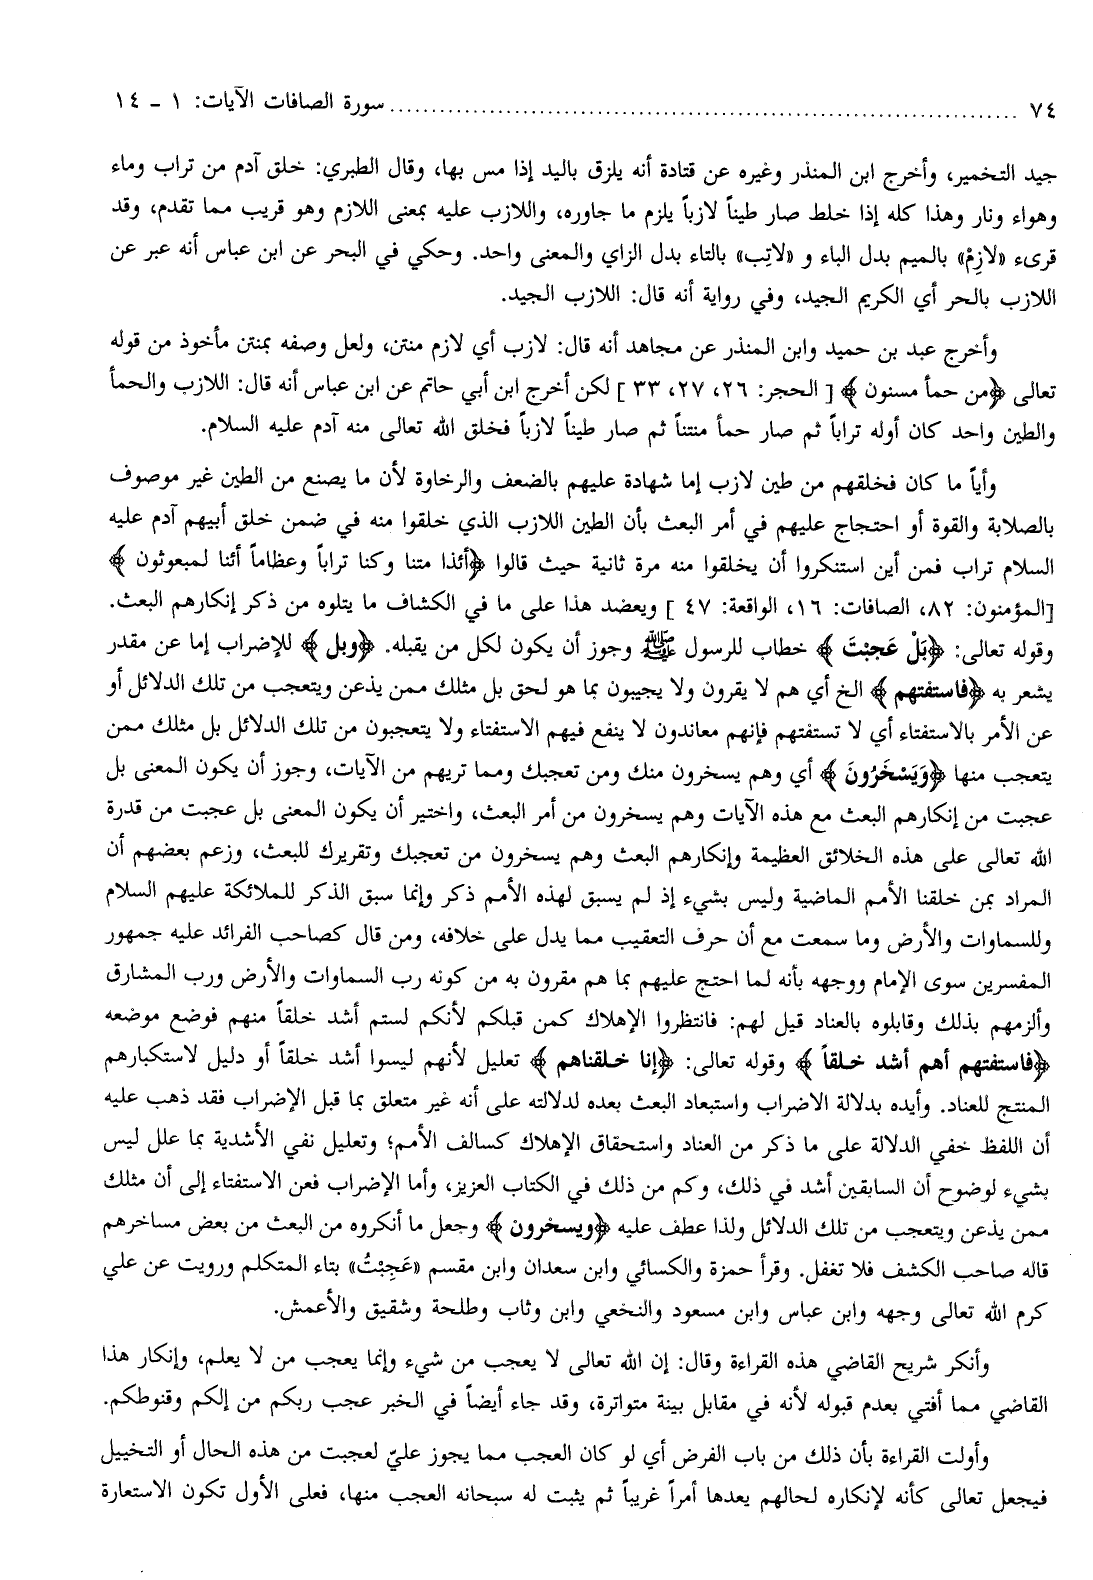 ٧٤ .......... سورة الصافات الآيات: ١ - ١٤
جيد التخمير، وأخرج ابن المنذر وغيره عن قتادة أنه يلزق باليد إذا مس بها، وقال الطبري: خلق آدم من تراب وماء
وهواء ونار وهذا كله إذا خلط صار طيناً لازباً يلزم ما جاوره، واللازب عليه بمعنى اللازم وهو قريب مما تقدم، وقد
قرىء «لازِمْ» بالميم بدل الباء و «لاتِب» بالتاء بدل الزاي والمعنى واحد. وحكي في البحر عن ابن عباس أنه عبر عن
اللازب بالحر أي الكريم الجيد، وفي رواية أنه قال: اللازب الجيد.
وأخرج عبد بن حميد وابن المنذر عن مجاهد أنه قال: لازب أي لازم منتن، ولعل وصفه بمنتن مأخوذ من قوله
تعالى ﴿من حمأ مسنون﴾ [الحجر: ٢٦، ٢٧، ٣٣] لكن أخرج ابن أبي حاتم عن ابن عباس أنه قال: اللازب والحمأ
والطين واحد كان أوله تراباً ثم صار حمأ منتناً ثم صار طيناً لازباً فخلق الله تعالى منه آدم عليه السلام.
وأياً ما كان فخلقهم من طين لازب إما شهادة عليهم بالضعف والرخاوة لأن ما يصنع من الطين غير موصوف
بالصلابة والقوة أو احتجاج عليهم في أمر البعث بأن الطين اللازب الذي خلقوا منه في ضمن خلق أبيهم آدم عليه
السلام تراب فمن أين استنكروا أن يخلقوا منه مرة ثانية حيث قالوا ﴿أئذا متنا وكنا تراباً وعظاماً أئنا لمبعوثون﴾
[المؤمنون: ٨٢، الصافات: ١٦، الواقعة: ٤٧] ويعضد هذا على ما في الكشاف ما يتلوه من ذكر إنكارهم البعث.
وقوله تعالى: ﴿بَلْ عَجِبْتَ﴾ خطاب للرسول ﷺ وجوز أن يكون لكل من يقبله. ﴿وبل﴾ للإضراب إما عن مقدر
يشعر به ﴿فاستفتهم﴾ الخ أي هم لا يقرون ولا يجيبون بما هو لحق بل مثلك ممن يذعن ويتعجب من تلك الدلائل أو
عن الأمر بالاستفتاء أي لا تستفتهم فإنهم معاندون لا ينفع فيهم الاستفتاء ولا يتعجبون من تلك الدلائل بل مثلك ممن
يتعجب منها ﴿وَيَسْخَرُونَ﴾ أي وهم يسخرون منك ومن تعجبك ومما تريهم من الآيات، وجوز أن يكون المعنى بل
عجبت من إنكارهم البعث مع هذه الآيات وهم يسخرون من أمر البعث، واختير أن يكون المعنى بل عجبت من قدرة
الله تعالى على هذه الخلائق العظيمة وإنكارهم البعث وهم يسخرون من تعجبك وتقريرك للبعث، وزعم بعضهم أن
المراد بمن خلقنا الأمم الماضية وليس بشيء إذ لم يسبق لهذه الأمم ذكر وإنما سبق الذكر للملائكة عليهم السلام
وللسماوات والأرض وما سمعت مع أن حرف التعقيب مما يدل على خلافه، ومن قال كصاحب الفرائد عليه جمهور
المفسرين سوى الإمام ووجهه بأنه لما احتج عليهم بما هم مقرون به من كونه رب السماوات والأرض ورب المشارق
وألزمهم بذلك وقابلوه بالعناد قيل لهم: فانتظروا الإهلاك كمن قبلكم لأنكم لستم أشد خلقاً منهم فوضع موضعه
﴿فاستفتهم أهم أشد خلقاً﴾ وقوله تعالى: ﴿إنا خلقناهم﴾ تعليل لأنهم ليسوا أشد خلقاً أو دليل لاستكبارهم
المنتج للعناد. وأيده بدلالة الاضراب واستبعاد البعث بعده لدلالته على أنه غير متعلق بما قبل الإضراب فقد ذهب عليه
أن اللفظ خفي الدلالة على ما ذكر من العناد واستحقاق الإهلاك كسالف الأمم؛ وتعليل نفي الأشدية بما علل ليس
بشيء لوضوح أن السابقين أشد في ذلك، وكم من ذلك في الكتاب العزيز، وأما الإضراب فعن الاستفتاء إلى أن مثلك
ممن يذعن ويتعجب من تلك الدلائل ولذا عطف عليه ﴿ويسخرون﴾ وجعل ما أنكروه من البعث من بعض مساخرهم
قاله صاحب الكشف فلا تغفل. وقرأ حمزة والكسائي وابن سعدان وابن مقسم «عَجِبْتُ» بتاء المتكلم ورويت عن علي
كرم الله تعالى وجهه وابن عباس وابن مسعود والنخعي وابن وثاب وطلحة وشقيق والأعمش.
وأنكر شريح القاضي هذه القراءة وقال: إن الله تعالى لا يعجب من شيء وإنما يعجب من لا يعلم، وإنكار هذا
القاضي مما أفتي بعدم قبوله لأنه في مقابل بينة متواترة، وقد جاء أيضاً في الخبر عجب ربكم من إلكم وقنوطكم.
وأولت القراءة بأن ذلك من باب الفرض أي لو كان العجب مما يجوز عليّ لعجبت من هذه الحال أو التخييل
فيجعل تعالى كأنه لإنكاره لحالهم يعدها أمراً غريباً ثم يثبت له سبحانه العجب منها، فعلى الأول تكون الاستعارة